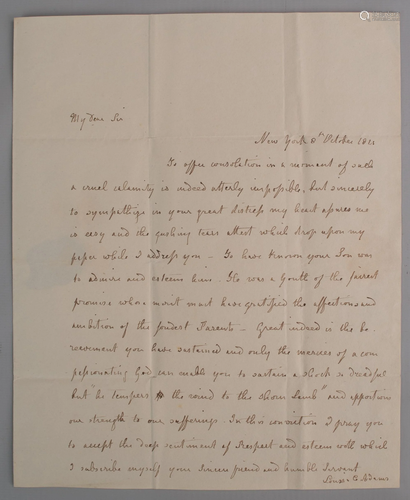 My Dear Sir
New York 8th October 18
To offer consolation in a moment of such
a cruel calamity is indeed utterly impossible, but sincerely
to sympathize in your great distress my heart assures me
is easy and the gushing tears attest which drop upon my
paper while I address you — To have known your Son was
to admire and esteem him. He was a Youth of the fairest
promise whose merit must have gratified the affections and
ambition of the fondest Parents — Great indeed is the be
reavement you have sustained and only the mercies of a com
passionating God can enable you to sustain a shock so dreadful
but "he tempers the wind to the shorn Lamb" and apportion
our strength to our sufferings. In this conviction I pray you
to accept the deep sentiment of Respect and esteem with which
I subscribe myself your sincere friend and humble Servant
Louisa C Adams